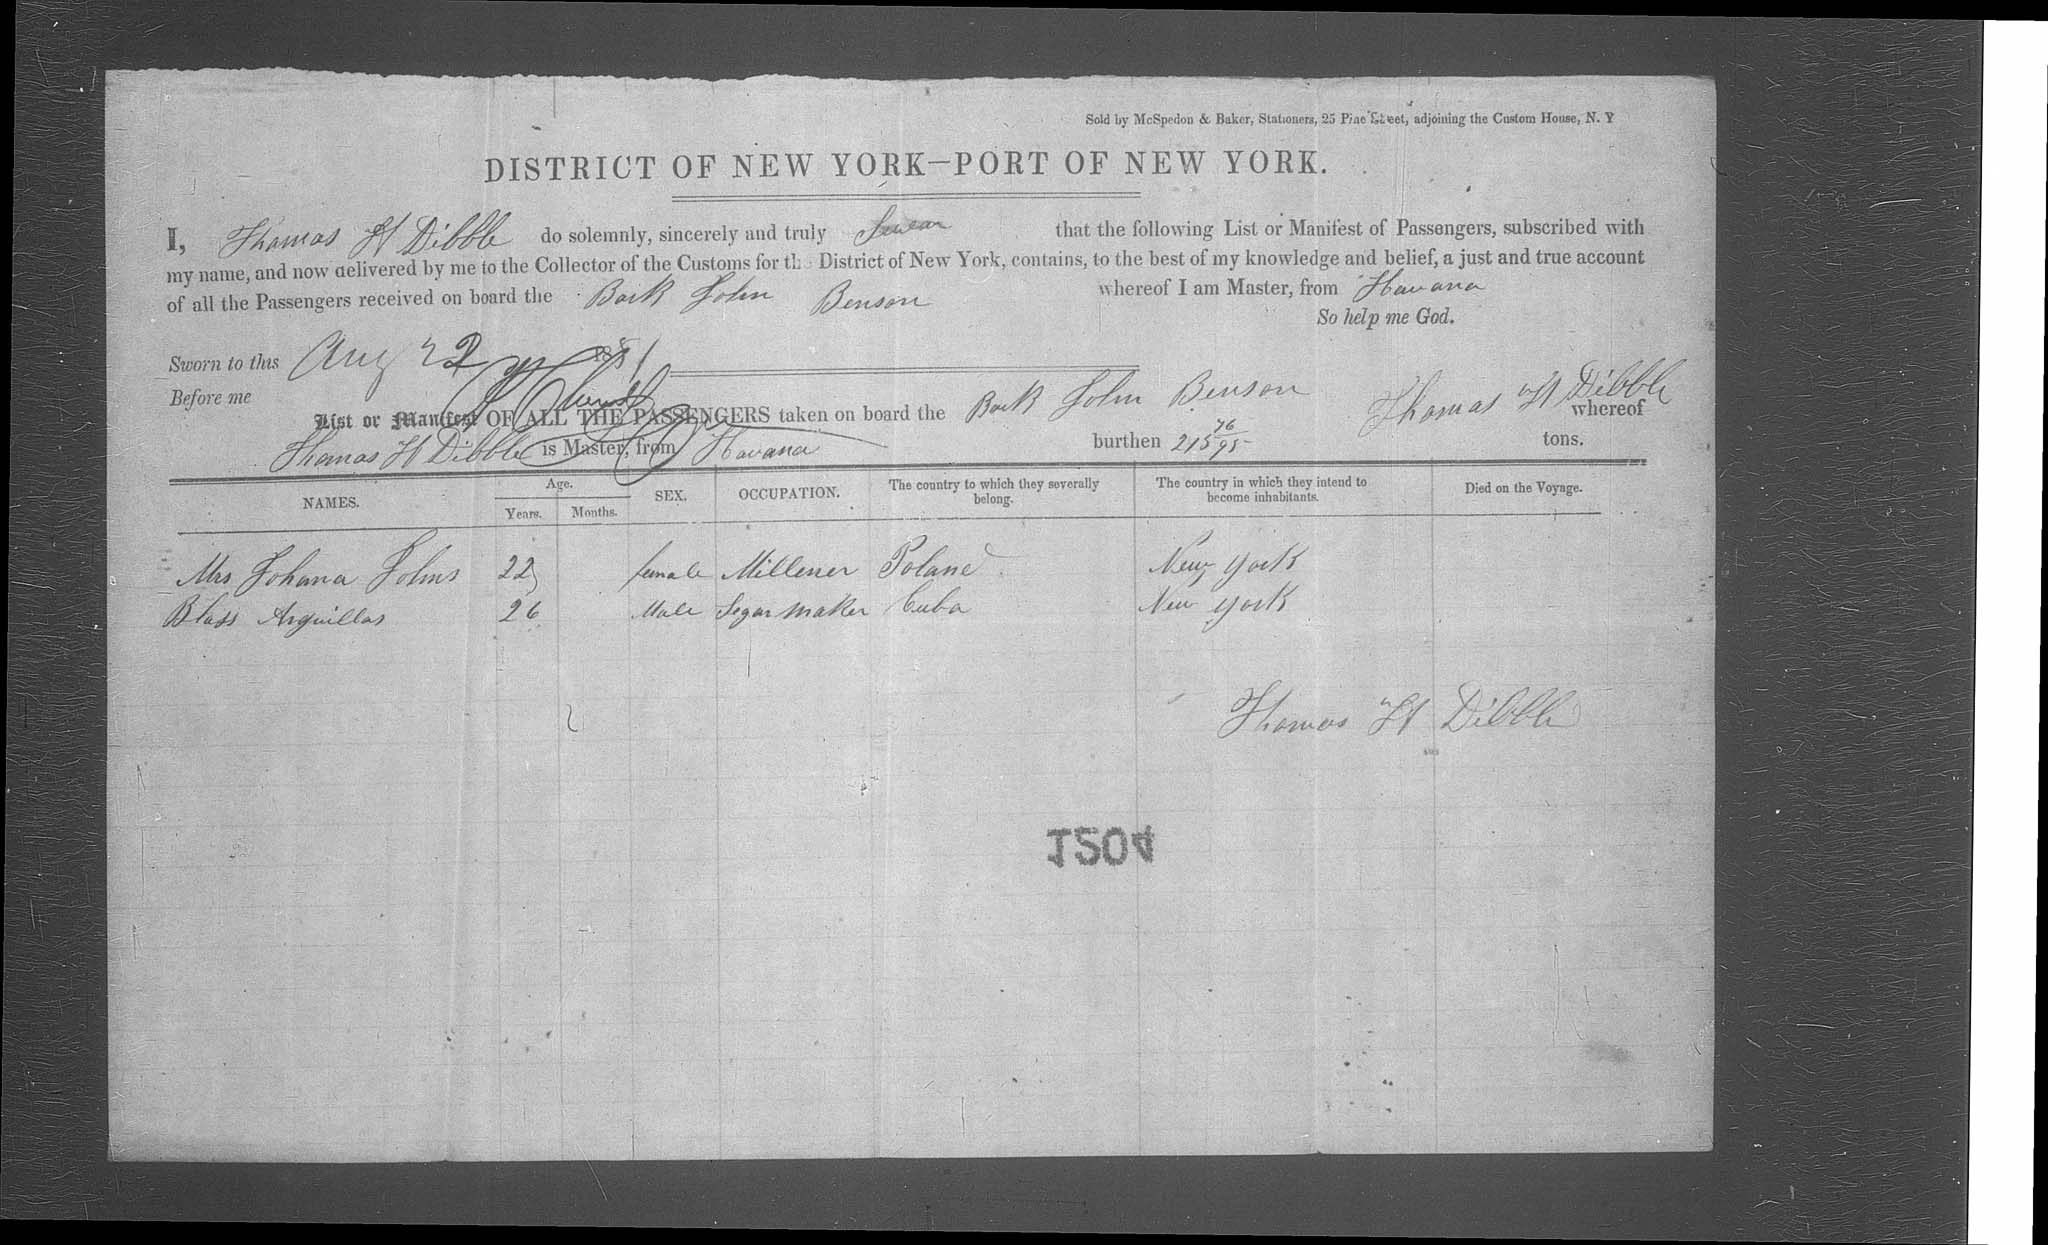 Sold by McSpedon & Baker, Stationers, 25 Pine Street, adjoining the Custom House, N. Y
DISTRICT OF NEW YORK—PORT OF NEW YORK.
I, Thomas H Dibble do solemnly, sincerely and truly Swear that the following List or Manifest of Passengers, subscribed with
my name, and now delivered by me to the Collector of the Customs for the District of New York, contains, to the best of my knowledge and belief, a just and true account
of all the Passengers received on board the Bark John Benson whereof I am Master, from Havana
So help me God.
Sworn to this Aug 22 1851
Before me
Thomas H Dibble
List or Manifest OF ALL THE PASSENGERS taken on board the Bark John Benson whereof
Thomas H Dibble is Master, from Havana burthen 215 76/95 tons.
NAMES. Age. Years. Months. SEX. OCCUPATION. The country to which they severally belong. The country in which they intend to become inhabitants. Died on the Voyage.
Mrs Johana Johns 22 female Millener Poland New York
Blass Arguillas 26 Male Segar maker Cuba New York
Thomas H Dibble
1204